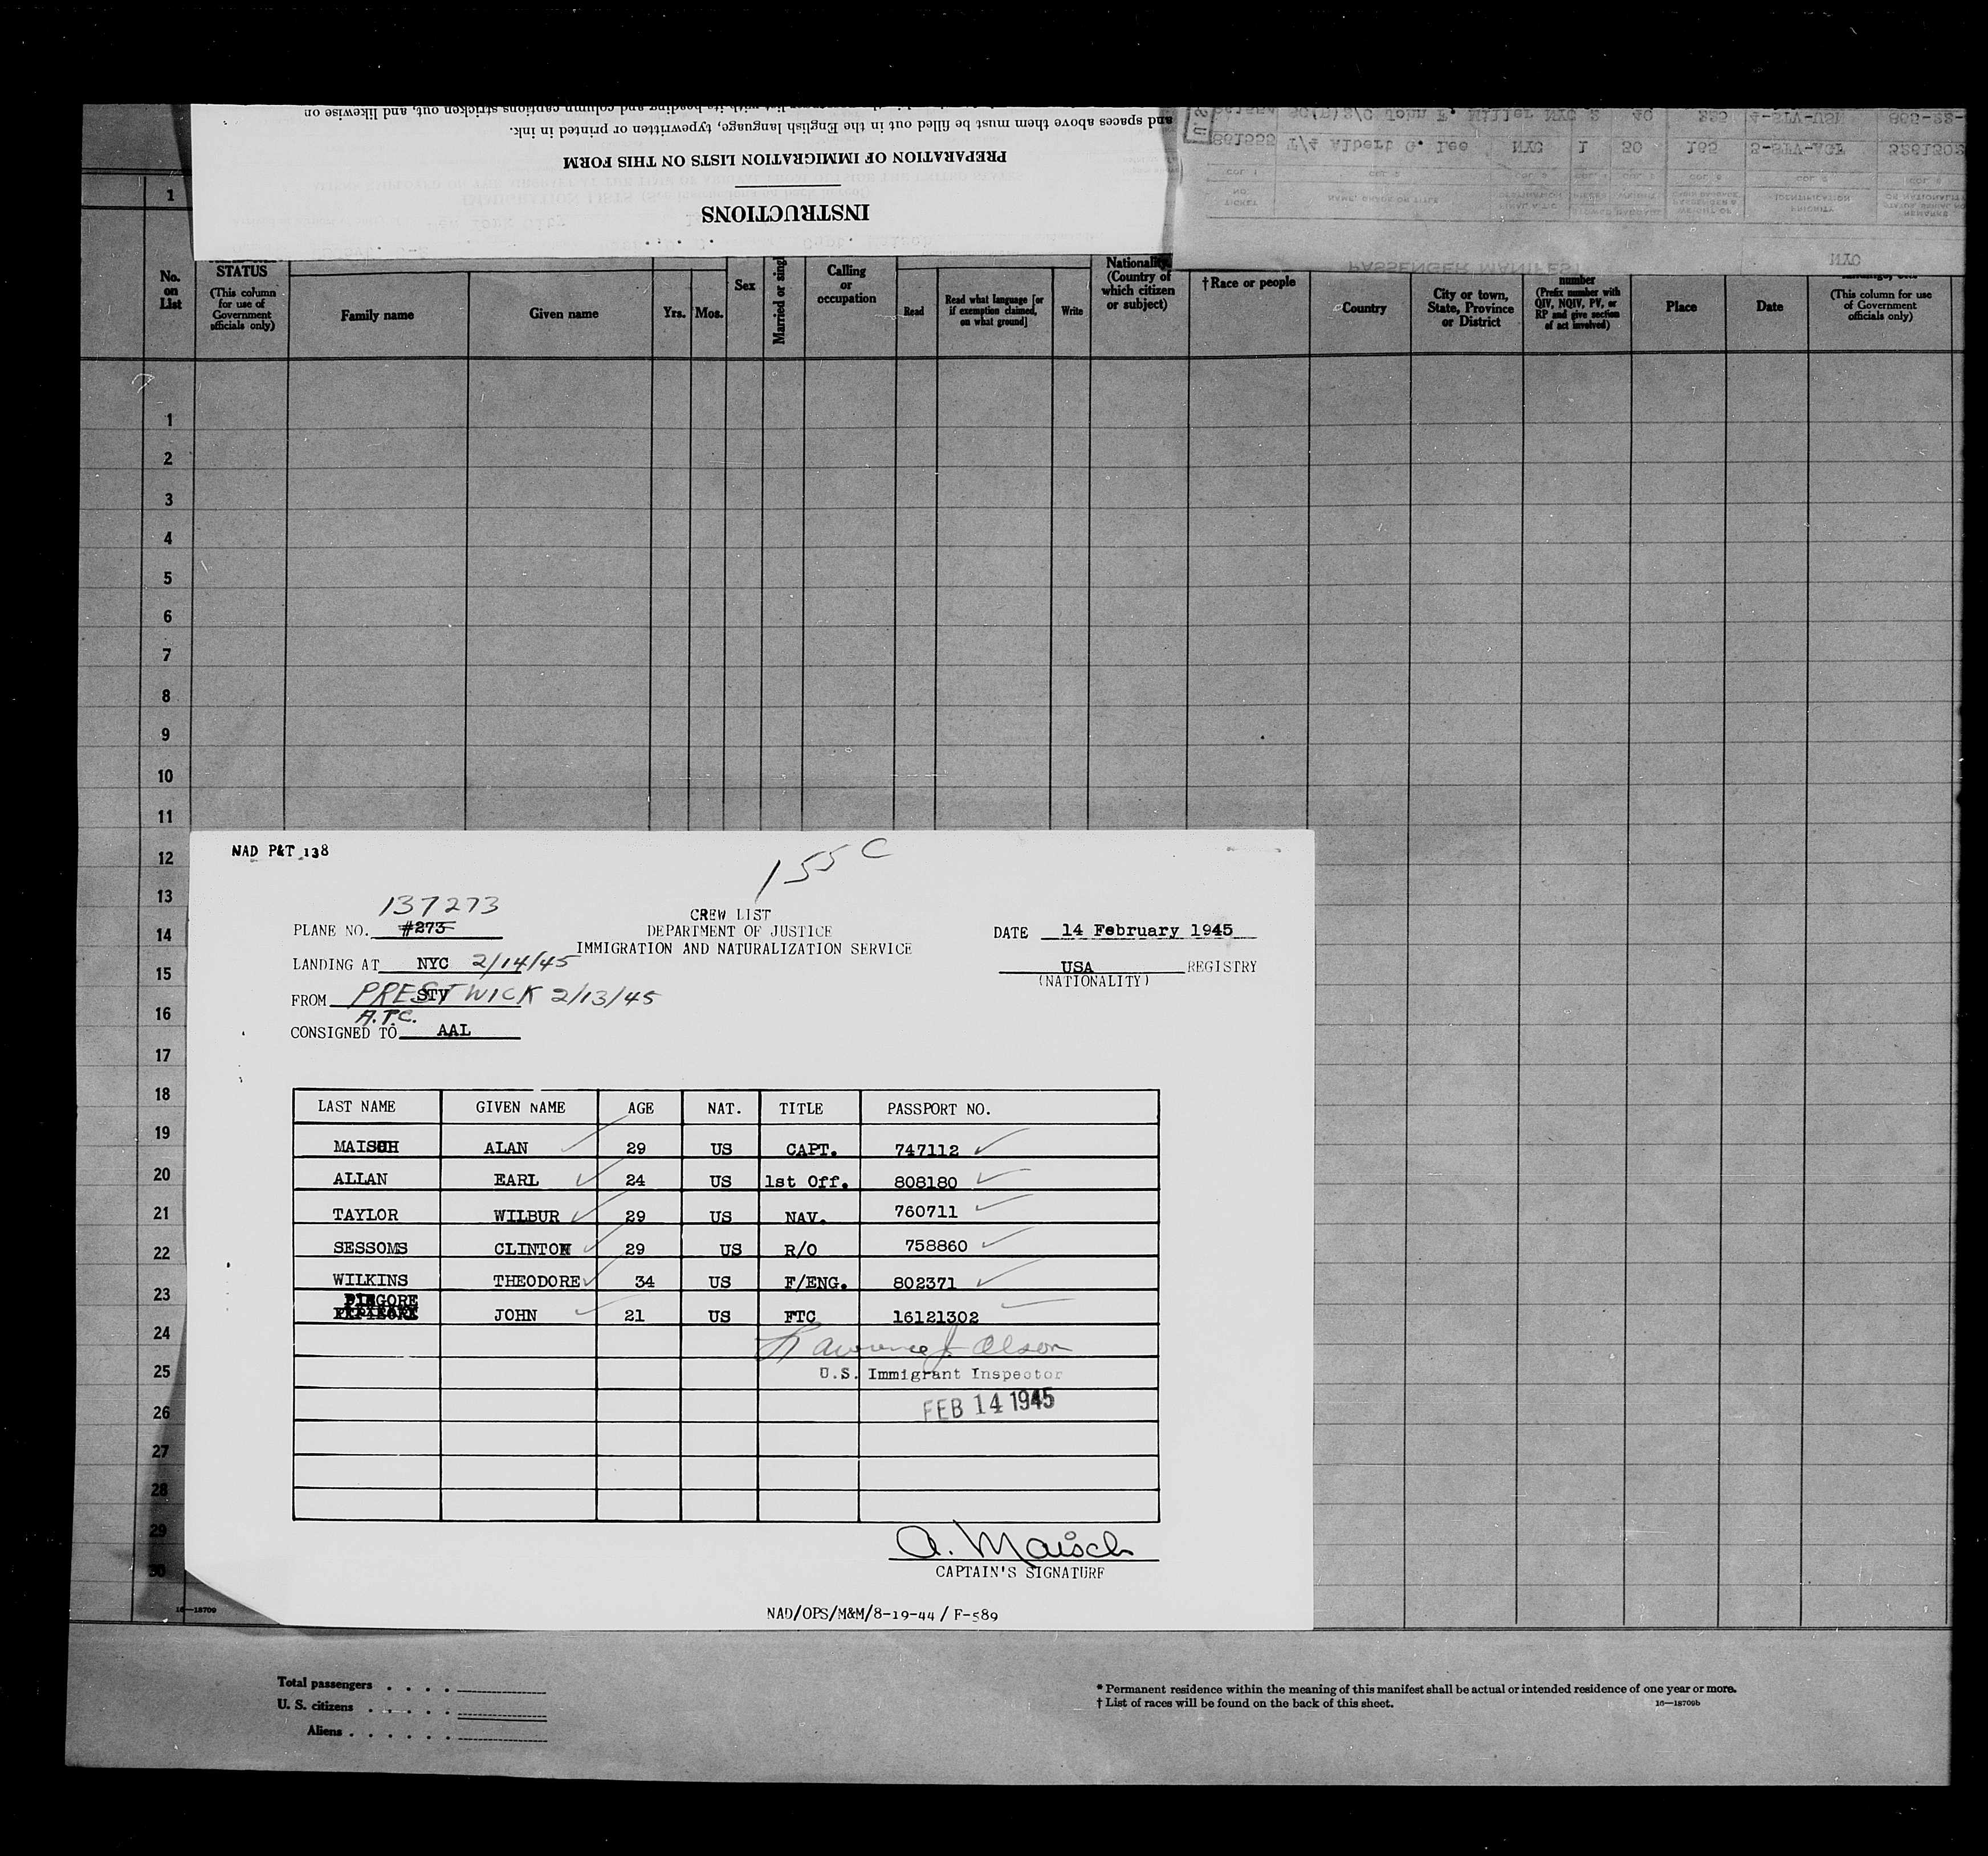 and spaces above them must be filled out in the English language, typewritten or printed in ink.
PREPARATION OF IMMIGRATION LISTS ON THIS FORM
INSTRUCTIONS
T/4 Albert G. Lee NYC 1 50 165
John F. Miller NYC 2 40 225
PASSENGER MANIFEST
NYC
1
No. on List
STATUS
(This column for use of Government officials only)
Family name
Given name
Yrs.
Mos.
Sex
Married or singl
Calling or occupation
Read
Read what language [or if exemption claimed, on what ground]
Write
Nationality. (Country of which citizen or subject)
† Race or people
Country
City or town, State, Province or District
number (Prefix number with QIV, NQIV, PV, or RP and give section of act involved)
Place
Date
(This column for use of Government officials only)
1
2
3
4
5
6
7
8
9
10
11
12
13
14
15
16
17
18
19
20
21
22
23
24
25
26
27
28
29
30
NAD P&T 138
155 C
137273
PLANE NO. #273
CREW LIST
DEPARTMENT OF JUSTICE
IMMIGRATION AND NATURALIZATION SERVICE
DATE 14 February 1945
LANDING AT NYC 2/14/45
USA REGISTRY
(NATIONALITY)
FROM STV PRESTWICK 2/13/45
A.T.C.
CONSIGNED TO AAL
LAST NAME GIVEN NAME AGE NAT. TITLE PASSPORT NO.
MAISCH ALAN 29 US CAPT. 747112
ALLAN EARL 24 US 1st Off. 808180
TAYLOR WILBUR 29 US NAV. 760711
SESSOMS CLINTON 29 US R/O 758860
WILKINS THEODORE 34 US F/ENG. 802371
JOHN 21 US FTC 16121302
Lawrence J. Olson
U.S. Immigrant Inspector
FEB 14 1945
A. Maisch
CAPTAIN'S SIGNATURE
NAD/OPS/M&M/8-19-44 / F-589
16—18709
Total passengers
U. S. citizens
Aliens
* Permanent residence within the meaning of this manifest shall be actual or intended residence of one year or more.
† List of races will be found on the back of this sheet.
16—18709b